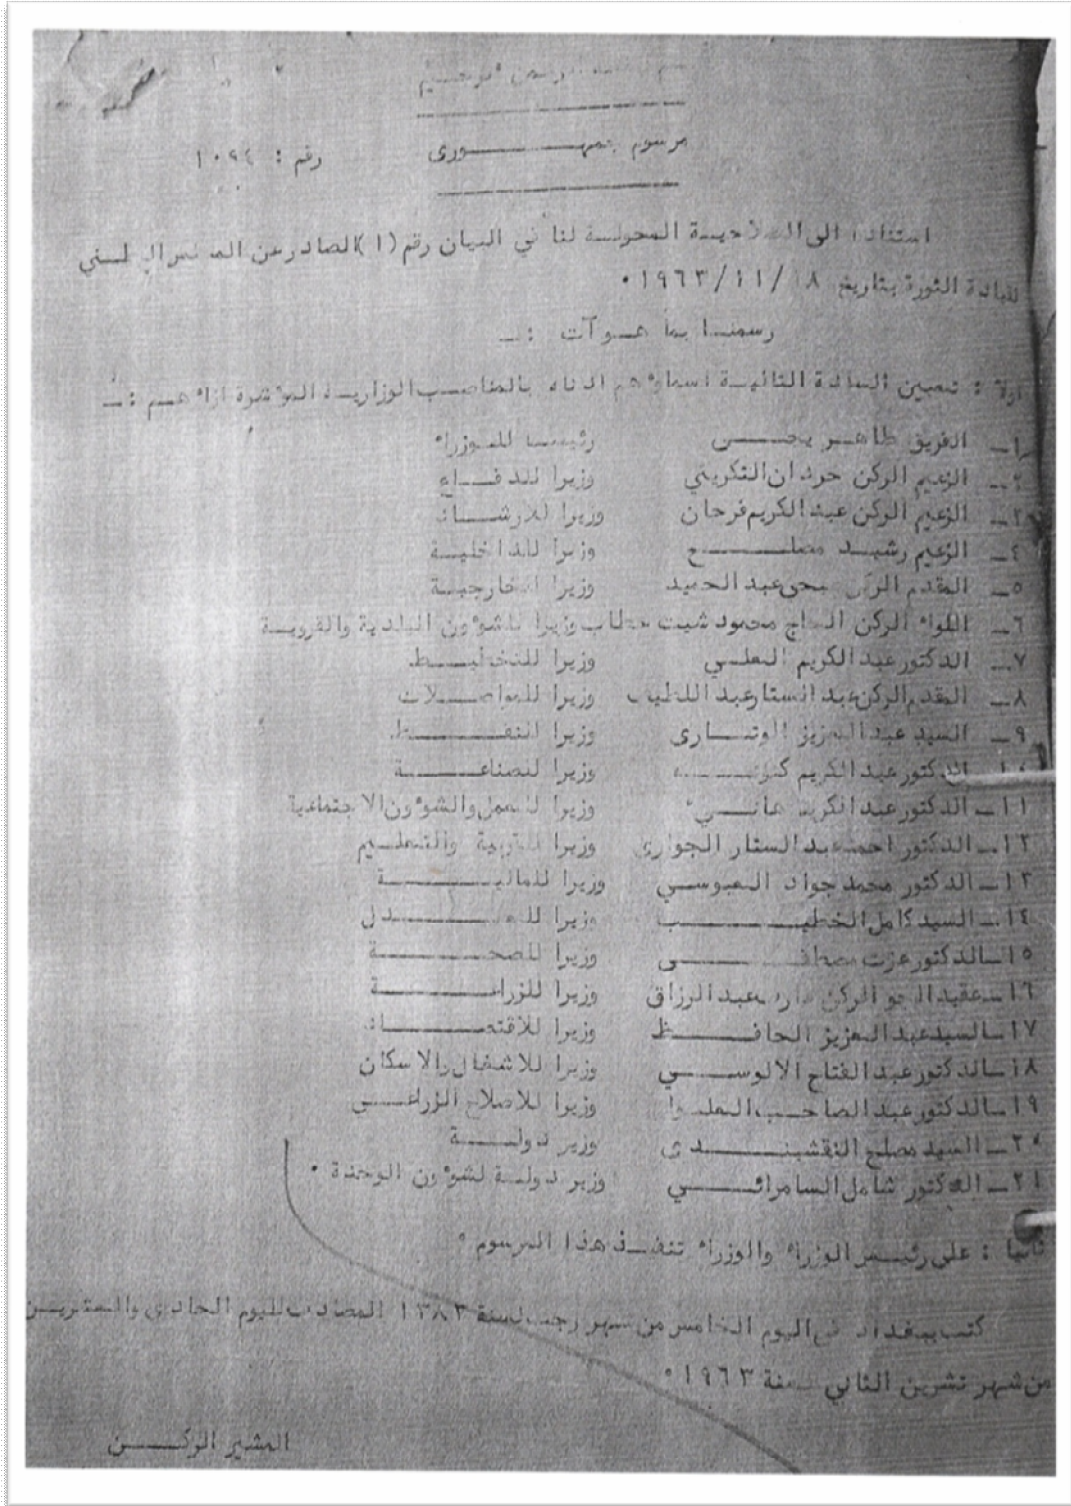 مرسوم جمهوري
رقم : ١٠٩٤
استنادا الى الصلاحية المخولة لنا في البيان رقم (١) الصادر عن المجلس الوطني
لقيادة الثورة بتاريخ ١٨/١١/١٩٦٣ .
رسمنا بما هو آت :ـ
اولا : تعيين السادة التالية اسماؤهم ادناه بالمناصب الوزارية المؤشرة ازاءهم :ـ
١ـ الفريق طاهر يحيى رئيسا للوزراء
٢ـ الزعيم الركن حردان التكريتي وزيرا للدفاع
٣ـ الزعيم الركن عبد الكريم فرحان وزيرا للارشاد
٤ـ الزعيم رشيد مصلح وزيرا للداخلية
٥ـ المقدم الركن صبحي عبد الحميد وزيرا للخارجية
٦ـ اللواء الركن الحاج محمود شيت خطاب وزيرا للشؤون البلدية والقروية
٧ـ الدكتور عبد الكريم العلي وزيرا للتخطيط
٨ـ المقدم الركن عبد الستار عبد اللطيف وزيرا للمواصلات
٩ـ السيد عبد العزيز الوتاري وزيرا للنفط
١٠ـ الدكتور عبد الكريم كنونه وزيرا للصناعة
١١ـ الدكتور عبد الكريم هاني وزيرا للعمل والشؤون الاجتماعية
١٢ـ الدكتور احمد عبد الستار الجواري وزيرا للتربية والتعليم
١٣ـ الدكتور محمد جواد العبوسي وزيرا للمالية
١٤ـ السيد كامل الخطيب وزيرا للعدل
١٥ـ الدكتور عزت مصطفى وزيرا للصحة
١٦ـ عقيد الجو الركن عارف عبد الرزاق وزيرا للزراعة
١٧ـ السيد عبد العزيز الحافظ وزيرا للاقتصاد
١٨ـ الدكتور عبد الفتاح الالوسي وزيرا للاشغال والاسكان
١٩ـ الدكتور عبد الصاحب العلوان وزيرا للاصلاح الزراعي
٢٠ـ السيد مصلح النقشبندي وزير دولة
٢١ـ الدكتور شامل السامرائي وزير دولة لشؤون الوحدة .
ثانيا : على رئيس الوزراء والوزراء تنفيذ هذا المرسوم .
كتب ببغداد في اليوم الخامس من شهر رجب لسنة ١٣٨٣ المصادف لليوم الحادي والعشرين
من شهر تشرين الثاني لسنة ١٩٦٣ .
المشير الركن